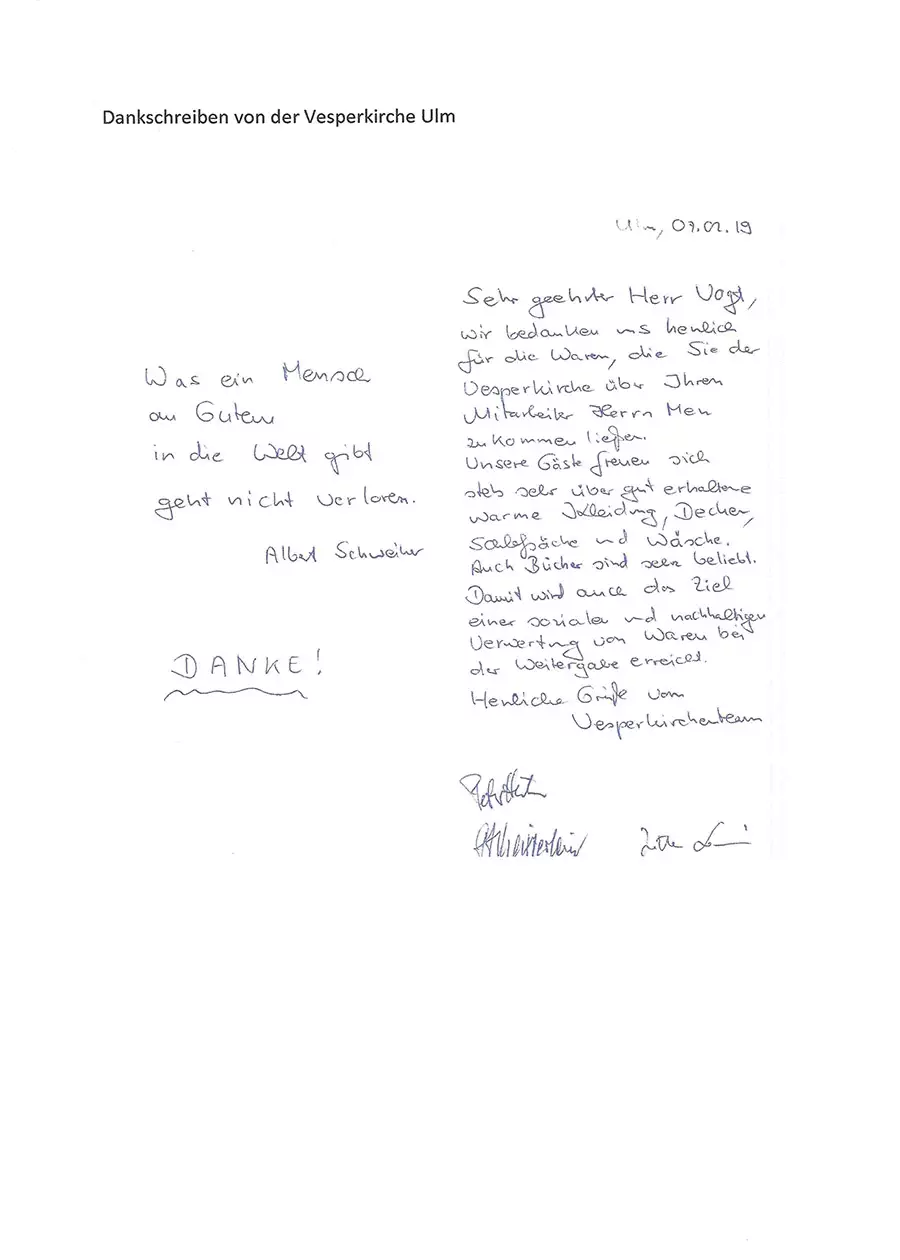 Dankschreiben von der Vesperkirche Ulm
Was ein Mensch
an Gutem
in die Welt gibt
geht nicht verloren.
Albert Schweitzer
DANKE!
Ulm, 07.02.19
Sehr geehrter Herr Vogt,
wir bedanken uns herzlich
für die Waren, die Sie der
Vesperkirche über Ihren
Mitarbeiter Herrn
zukommen ließen.
Unsere Gäste freuen sich
stets sehr über gut erhaltene
warme Kleidung, Decken,
Schlafsäcke und Wäsche.
Auch Bücher sind sehr beliebt.
Damit wird auch das Ziel
einer sozialen und nachhaltigen
Verwertung von Waren bei
der Weitergabe erreicht.
Herzliche Grüße vom
Vesperkirchenteam